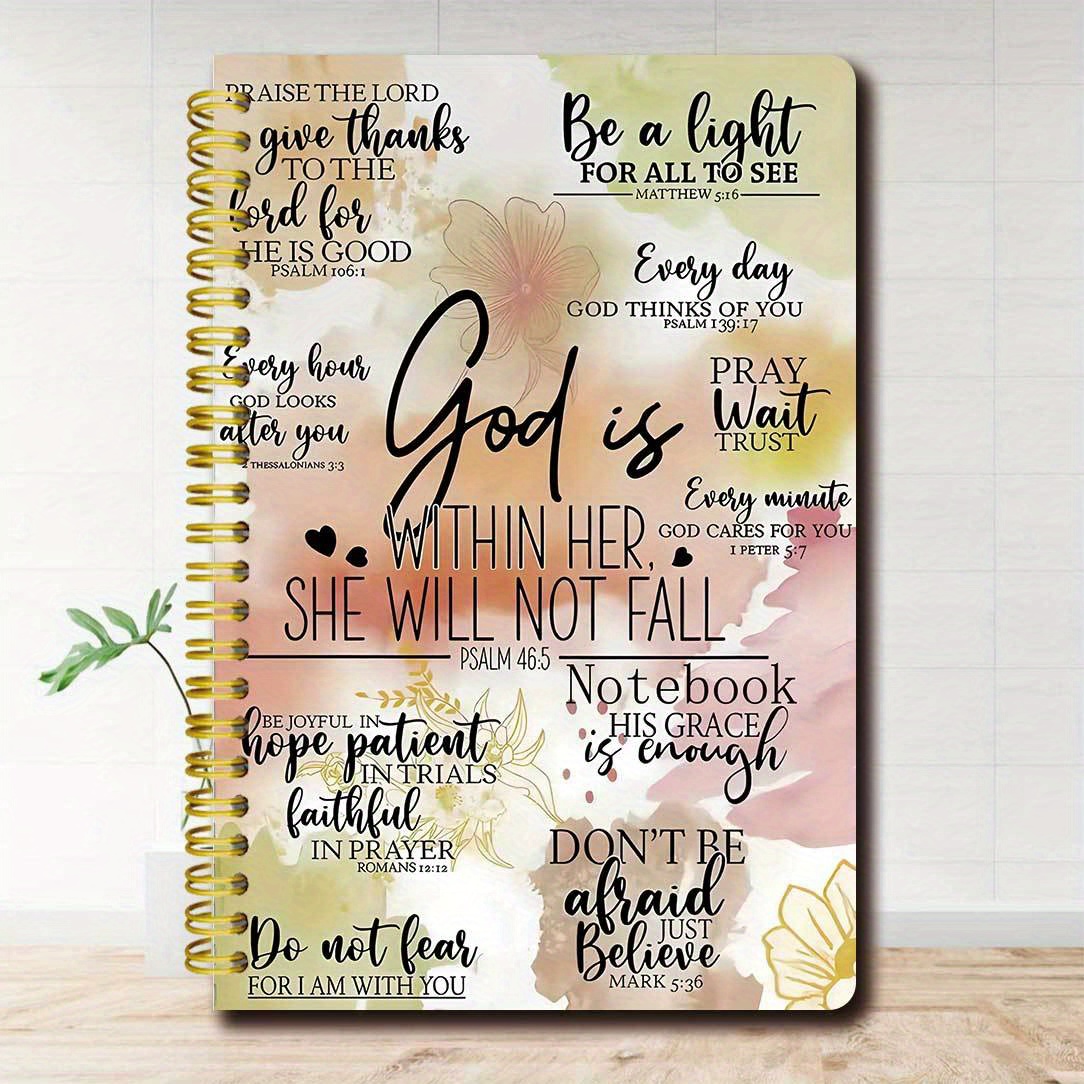 PRAISE THE LORD
give thanks
TO THE
lord for
HE IS GOOD
PSALM 106:1
Be a light
FOR ALL TO SEE
MATTHEW 5:16
Every day
GOD THINKS OF YOU
PSALM 139:17
Every hour
GOD LOOKS
after you
2 THESSALONIANS 3:3
PRAY
Wait
TRUST
Every minute
GOD CARES FOR YOU
1 PETER 5:7
God is
WITHIN HER,
SHE WILL NOT FALL
PSALM 46:5
Notebook
HIS GRACE
is enough
BE JOYFUL IN
hope patient
IN TRIALS
faithful
IN PRAYER
ROMANS 12:12
DON'T BE
afraid
JUST
Believe
MARK 5:36
Do not fear
FOR I AM WITH YOU